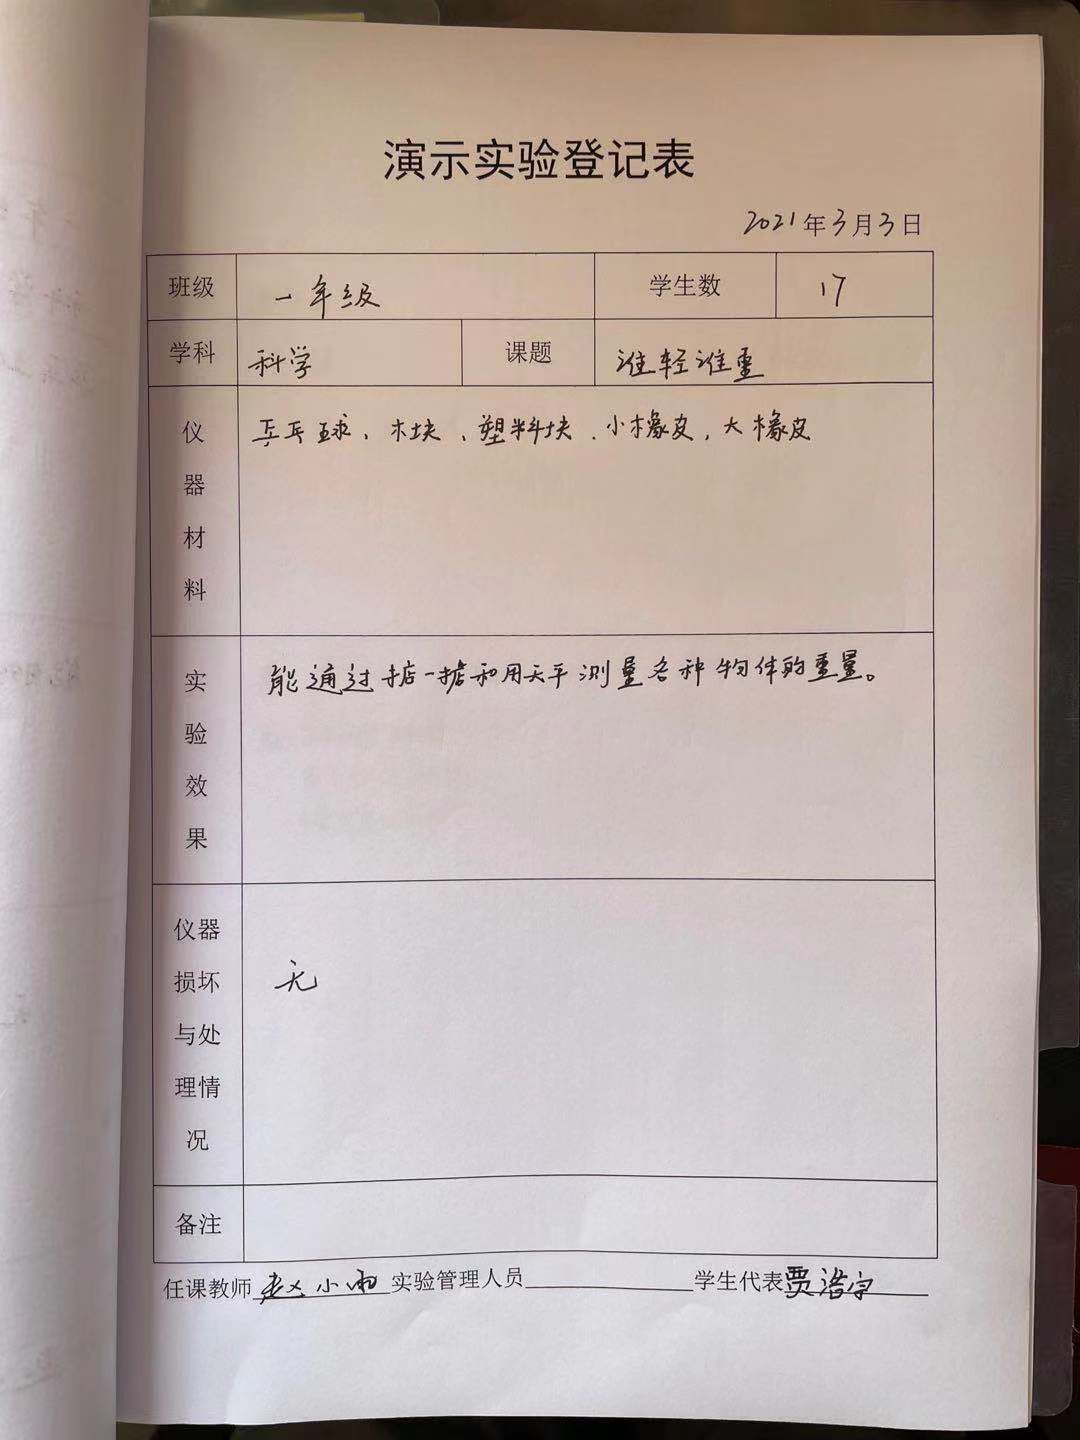 演示实验登记表
2021年3月3日
班级 一年级 学生数 17
学科 科学 课题 谁轻谁重
仪器材料 乒乓球、木块、塑料块、小橡皮，大橡皮
实验效果 能通过掂一掂和用天平测量各种物体的重量。
仪器损坏与处理情况 无
备注
任课教师 赵小雨 实验管理人员 学生代表 贾浩宇